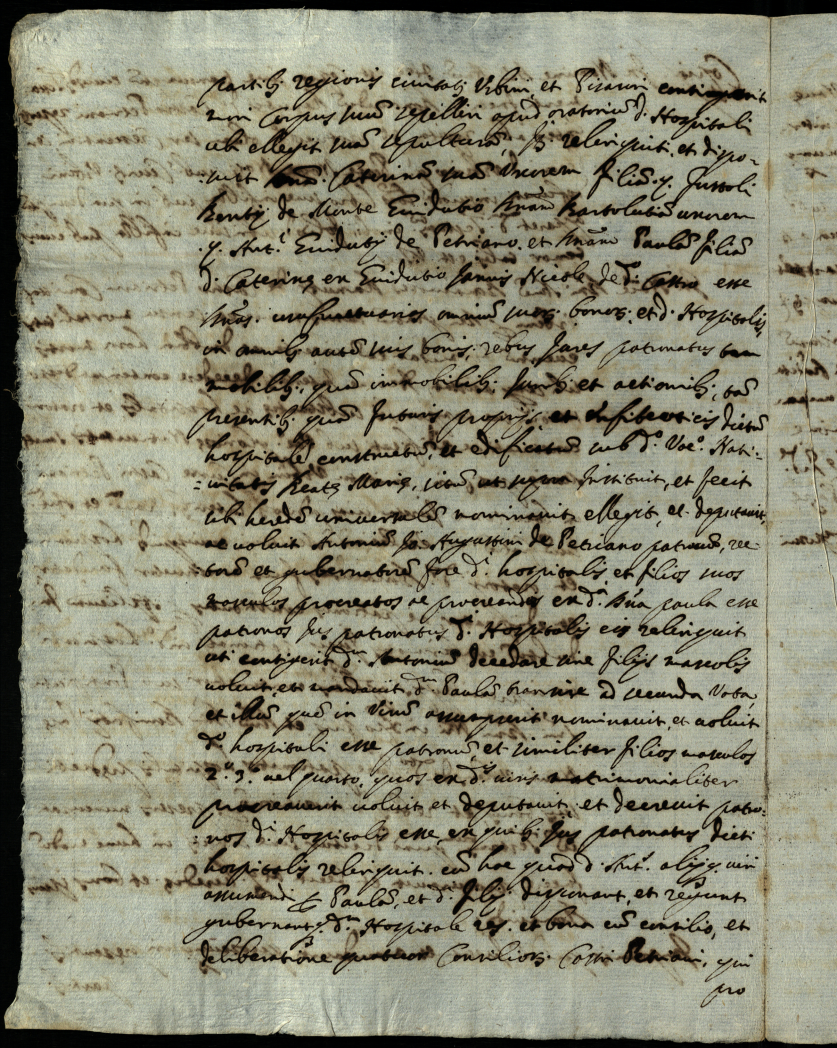 partib; regionis civitatis Urbini et Pisauri contigerit
mori Corpus suũ sepelliri apud oratoriũ d. Hospitalis
ubi ellegit suã sepulturã, relinquit, et dispo-
suit Caterinã suã Uxorem filiã q.
de Monte Guidutio Bartolutiã uxorem
q. Ant.i Guidutij de Petriano, et Paulã filiã
d. Caterinę ex Guidutio Nicolę de d.o Castro esse
usufructuarias omniũ suor. bonor. et d. Hospitalis,
in omnib; autẽ suis bonis, rebus, Jures patronatus tam
mobilib; quã immobilib; Jurib; et actionib; tã
presentib; quã futuris proprijs, et enfiteoticis dictũ
hospitale constructũ, et edificatũ sub d.o Voc.o Nati-
=vitatis Beatę Marię, sitũ ut supra Instituit, et fecit
sibi heredẽ universalẽ nominavit ellegit, et deputavit,
ac voluit Antoniũ Jo Augustini de Petriano patronũ, rec
torẽ et gubernatorẽ fore d.i hospitalis, et filios suos
masculos procreatos ac procreandos ex d.a paula esse
patronos Jus patronatus d.i Hospitalis eis relinquit
ut contigerit d.m Antoniũ decedere sine filijs masculis
voluit, et mandavit d.m Paulã transire ad secunda Vota,
et illũ quẽ in Virũ assumpserit nominavit, et voluit
d.i hospitali esse patronũ, et similiter filios masculos
2.o 3.o vel quarto, quos ex d.is viris matrimonialiter
procreaverit voluit et deputavit, et decrevit patro-
=nos d.i Hospitalis esse, ex quib; Jus patronatus dicti
hospitalis relinquit. cũ hac quod d. Ant.s alijq; viri
assumendi p Paulã, et d. filij disponant, et regant
gubernantq; d.m Hospitale res, et bona cũ consilio, et
deliberatione quatuor Consilior. Castri Petriani, qui
pro